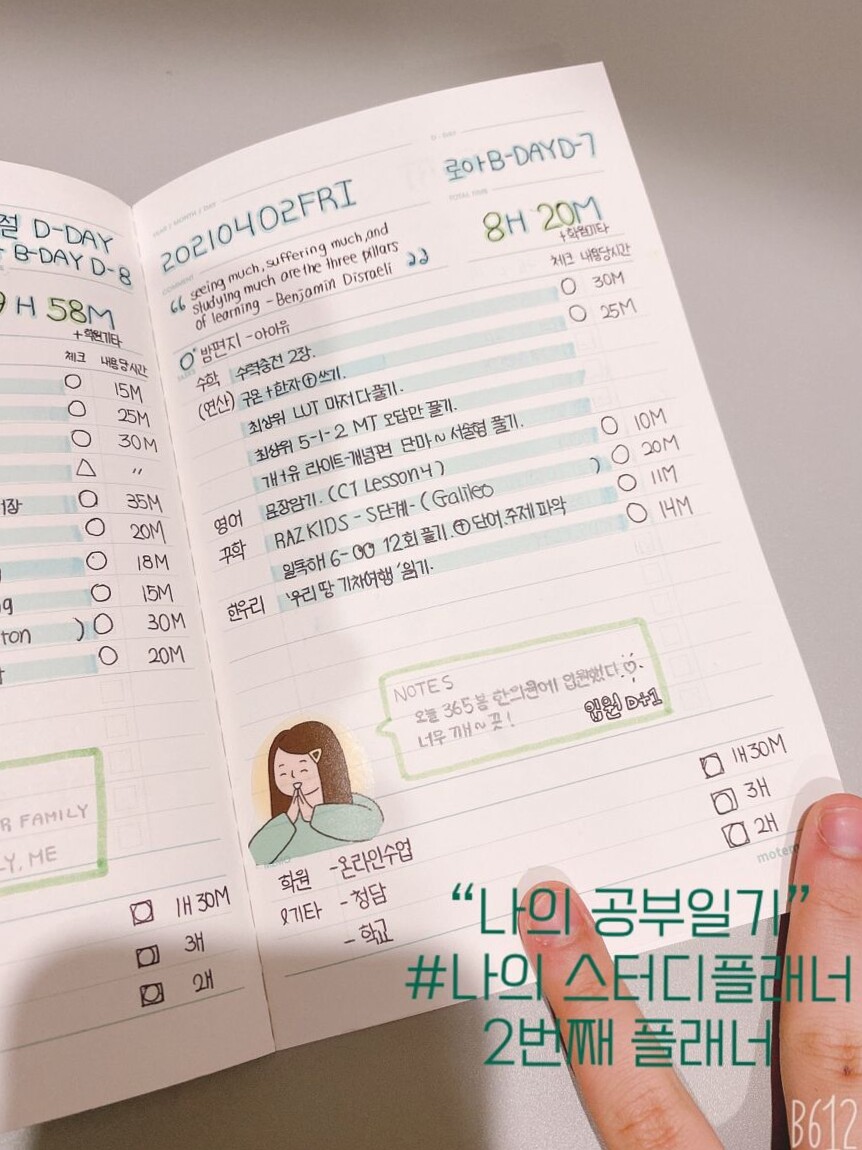 절 D-DAY
B-DAY D-8
9H 58M
+학원기타
체크 내용당시간
15M
25M
30M
"
35M
20M
18M
15M
ton ) 30M
20M
R FAMILY
LY, ME
1H 30M
3H
2H
YEAR / MONTH / DAY
20210402FRI
D-DAY
로아B-DAYD-7
COMMENT
seeing much, suffering much, and
studying much are the three pillars
of learning - Benjamin Disraeli
TOTAL TIME
8H 20M
+학원기타
체크 내용당시간
밤편지 - 아이유
수학 수력충전 2장. 30M
(연산) 구몬+한자⊕쓰기. 25M
최상위 LUT 마저다풀기.
최상위 5-1-2 MT 오답만 풀기.
개+유 라이트-개념편 단마~서술형 풀기.
영어 문장암기. (CC1 Lesson4) 10M
RAZKIDS - S단계 - (Galileo ) 20M
일독해 6- 12회 풀기.⊕단어.주제파악 11M
한우리 '우리 땅 기차여행' 읽기. 14M
NOTES
오늘 365봄 한의원에 입원했다♡
너무 깨~끗!
입원 D+1
학원 -온라인수업 1H30M
&기타 -청담 3H
-학교 2H
motem
"나의 공부일기"
#나의 스터디플래너
2번째 플래너
B612